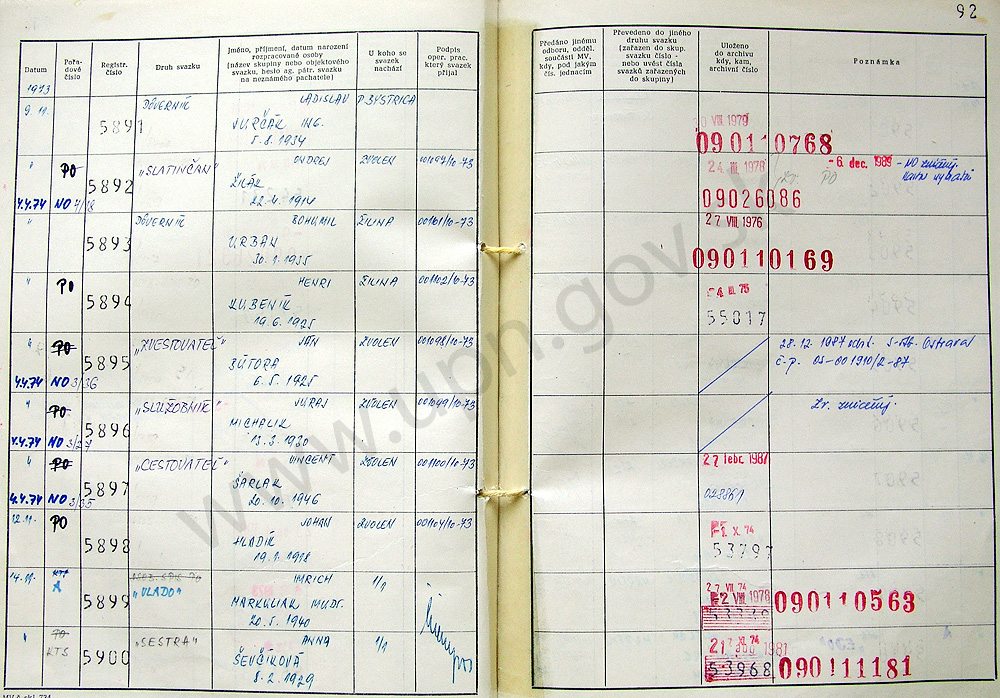 92
Datum
Pořa-
dové
číslo
Registr.
číslo
Druh svazku
Jméno, příjmení, datum narození
rozpracované osoby
(název skupiny nebo objektového
svazku, heslo ag. pátr. svazku
na neznámého pachatele)
U koho se
svazek
nachází
Podpis
oper. prac.
který svazek
přijal
Předáno jinému
odboru, odděl.
součásti MV,
kdy, pod jakým
čís. jednacím
Převedeno do jiného
druhu svazku
(zařazen do skup.
svazku číslo -
nebo uvést čísla
svazků zařazených
do skupiny)
Uloženo
do archivu
kdy, kam,
archivní číslo
Poznámka
1973
9.11. 5891 DÔVERNÍK LADISLAV P.BYSTRICA
JURČÁK ING.
5.8.1934
VIII 1979
090110768
" PO 5892 "SLATINČAN" ONDREJ ZVOLEN 001097/10-73
ŽILÁK
4.4.74 NO 7/18 22.4.1914
24. III 1978 - 6. dec. 1989 - NO zničený.
PO
09026086
" 5893 DÔVERNÍK BOHUMIL ŽILINA 001101/10-73
URBAN
30.1.1935
27 VIII. 1976
090110169
" PO 5894 HENRI ŽILINA 001102/10-73
ĽUBENÍK
19.6.1925
75
55017
" PO 5895 "ZVESTOVATEĽ" JÁN ZVOLEN 001098/10-73
BÚTORA
4.4.74 NO 3/36 6.5.1925
28.12.1987 odsl. S-ŠtB Ostrava
č.p. OS-001910/2-87
" PO 5896 "SLUŽOBNÍK" JURAJ ZVOLEN 001099/10-73
MICHALIK
4.4.74 NO 3/27 13.3.1930
Zv. zničený.
" PO 5897 "CESTOVATEĽ" VINCENT ZVOLEN 001100/10-73
ŠARLAK
4.4.74 NO 3/35 20.10.1946
27 febr. 1987
023861
12.11. PO 5898 JOHAN ZVOLEN 001104/10-73
HLADÍK
19.1.1918
X. 74
53797
14.11. A 5899 "VLADO" IMRICH 1/1
MARKULIAK MUDr.
20.5.1940
27 VIII. 74
2 VIII. 1978
090110563
" KTS 5900 "SESTRA" ANNA 1/1
ŠEVČÍKOVÁ
8.2.1929
21 XI. 74
1981
53968 090111181
www.upn.gov.s